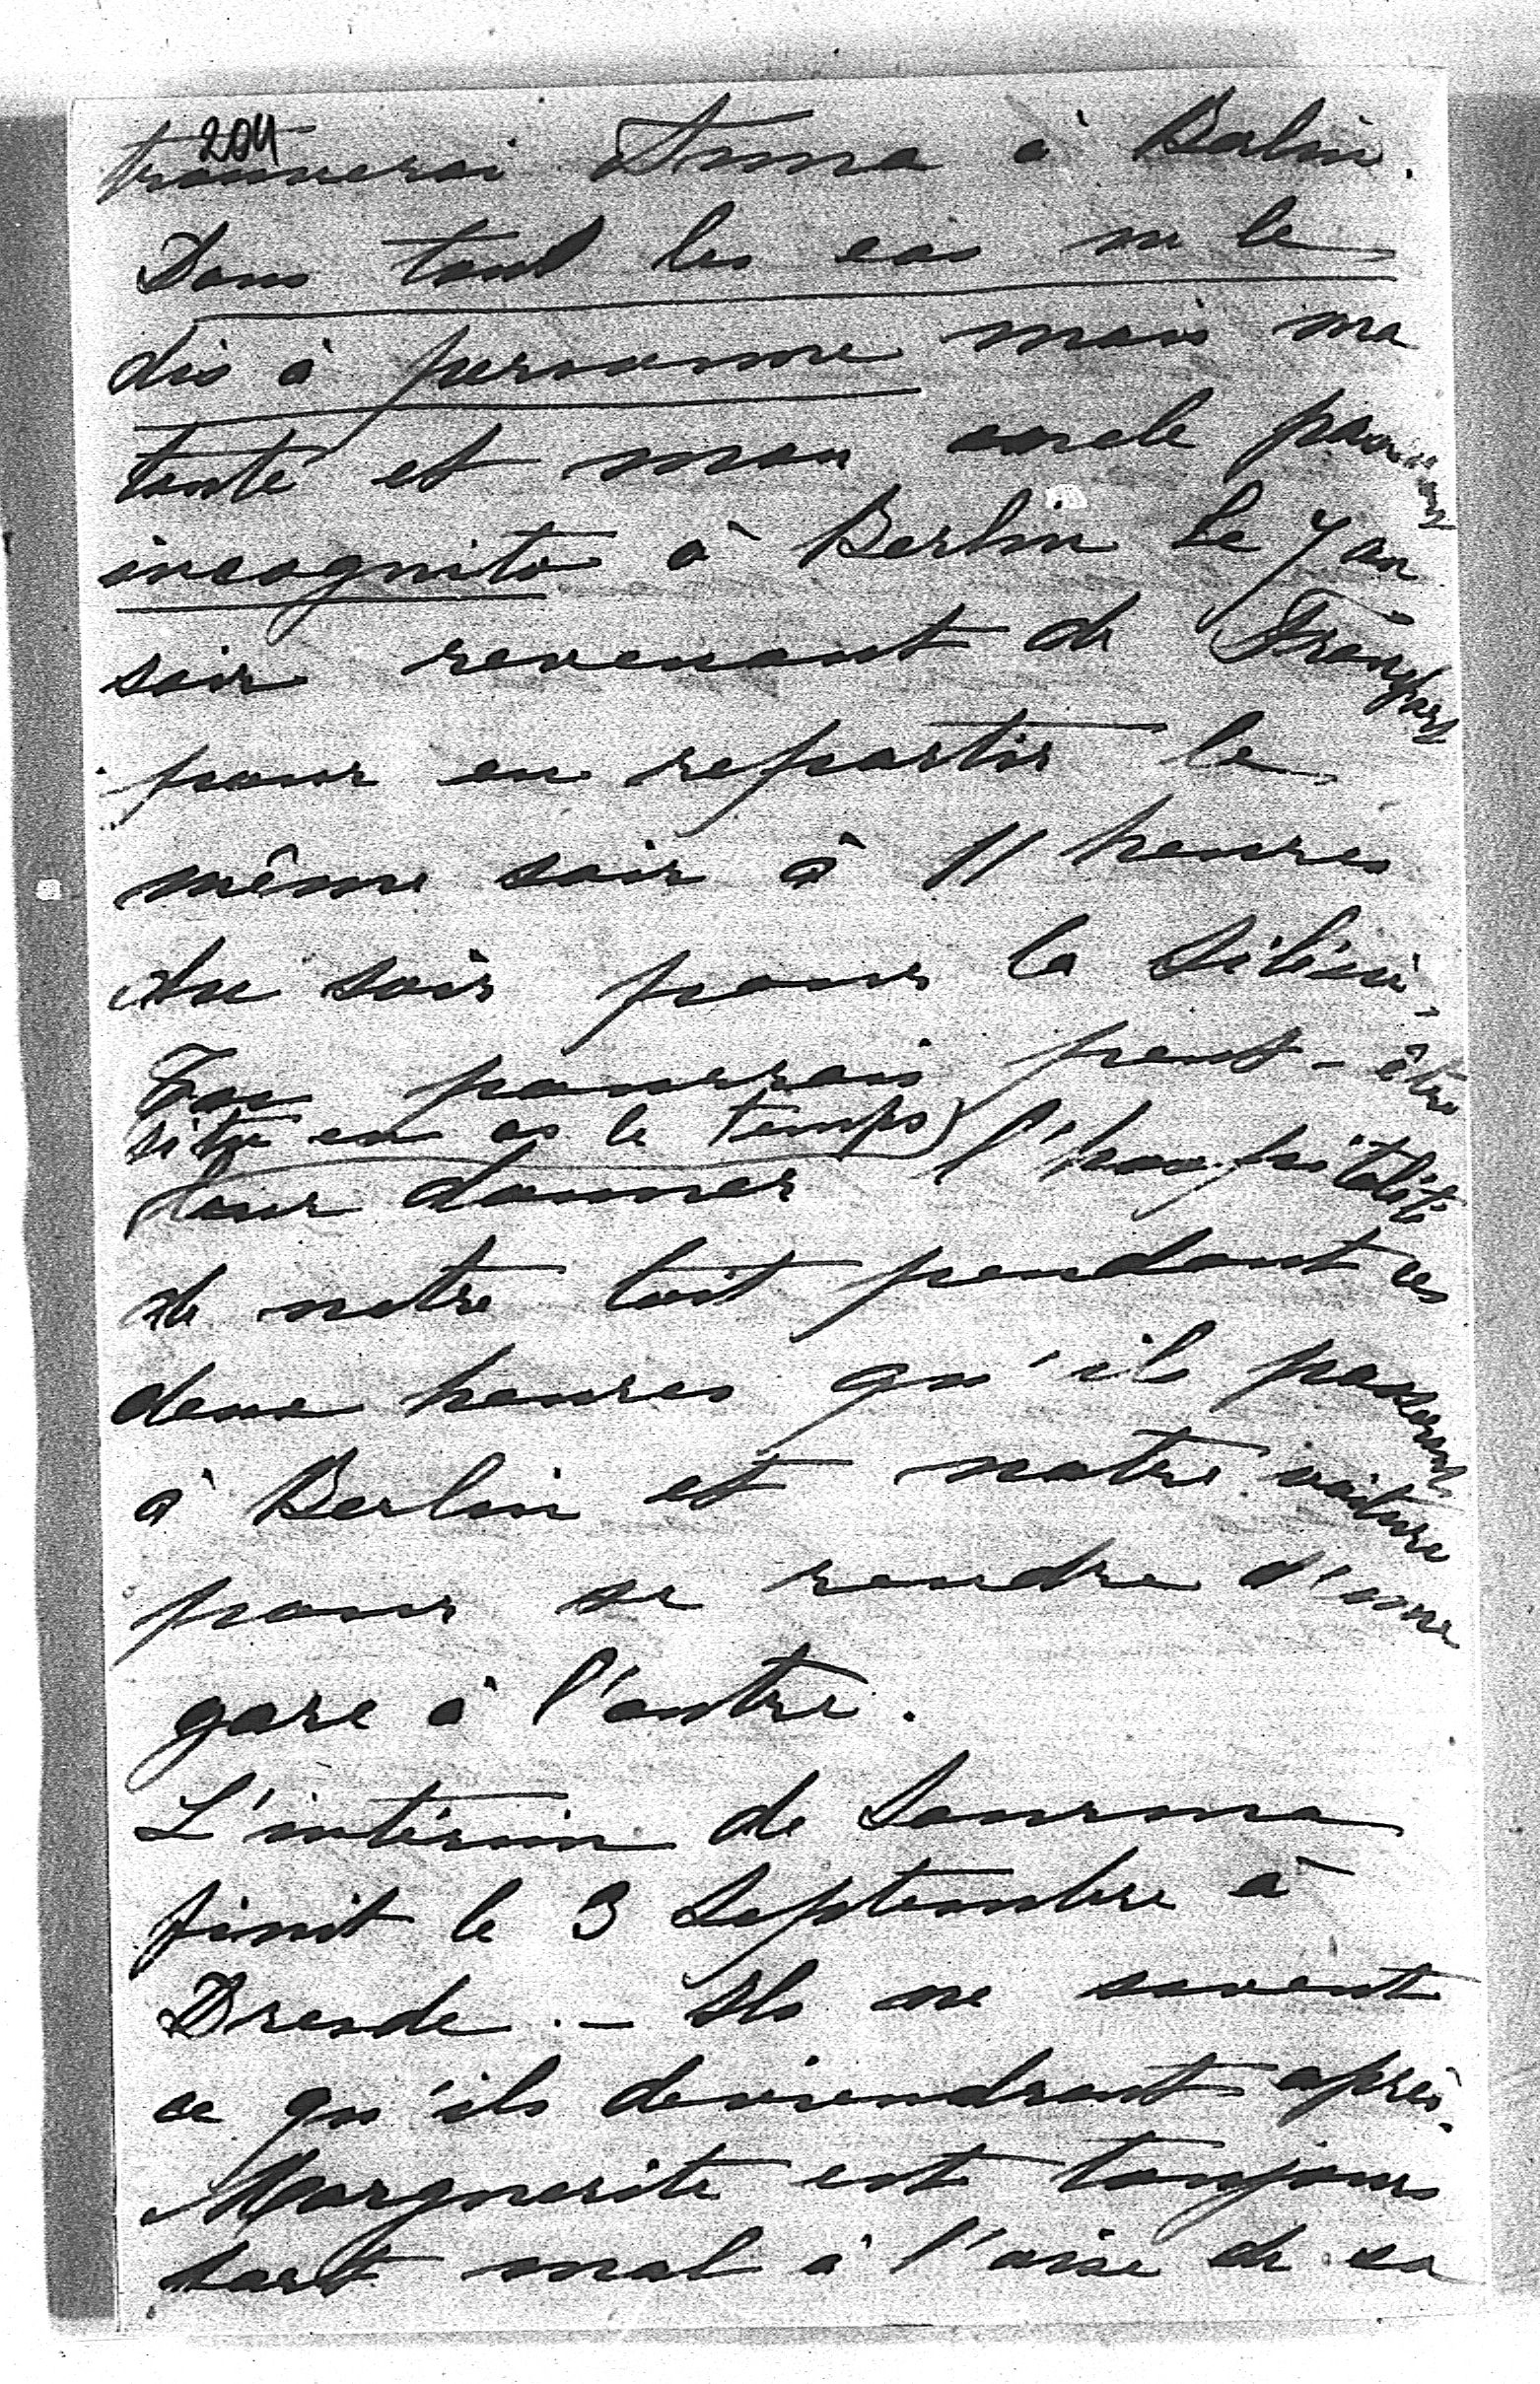 204
trouverai Anna à Berlin.
Dans tous les cas ne le
dis à personne mais ma
tante et mon oncle
incognito à Berlin le 7 au
soir revenant de
pour en repartir le
même soir à 11 heures
du soir pour la Silésie,
Tu pourrais peut-être
si tu en as le temps)
leur donner l'hospitalité
de notre toit pendant ces
deux heures qu'ils passeront
à Berlin et notre voiture
pour se rendre d'une
gare à l'autre.
L'intérim de Saurma
finit le 3 Septembre à
Dresde. – Ils ne savent
ce qu'ils deviendront après.
Marguerite est toujours
fort mal à l'aise de sa